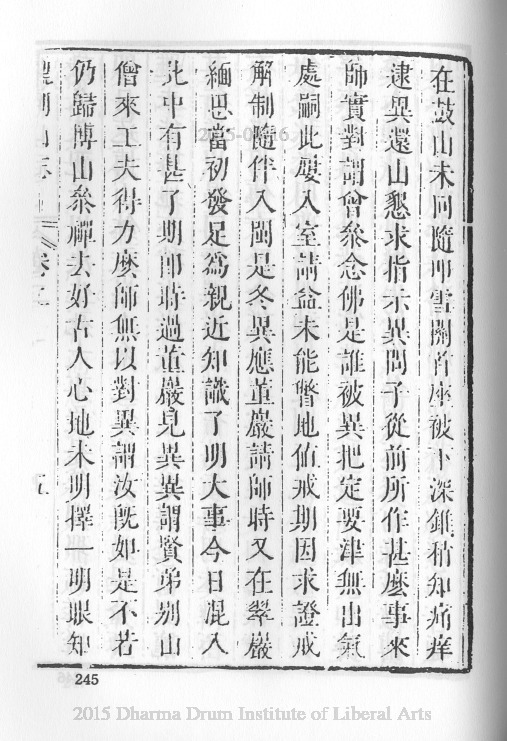 在鼓山未回隨叩雪關首座被下深錐稍知痛痒
逮異還山懇求指示異問子從前所作甚麼事來
師實對謂曾叅念佛是誰被異把定要津無出氣
處嗣此屢入室請益未能瞥地值戒期因求證戒
解制隨伴入閩是冬異應董巖請師時又在翠巖
緬思當初發足為親近知識了明大事今日混入
此中有甚了期即時過董巖見異異謂賢弟別山
僧來工夫得力麼師無以對異謂汝既如是不若
仍歸博山叅禪去好古人心地未明擇一明眼知
湖山志
卷二
五
245
2015 Dharma Drum Institute of Liberal Arts